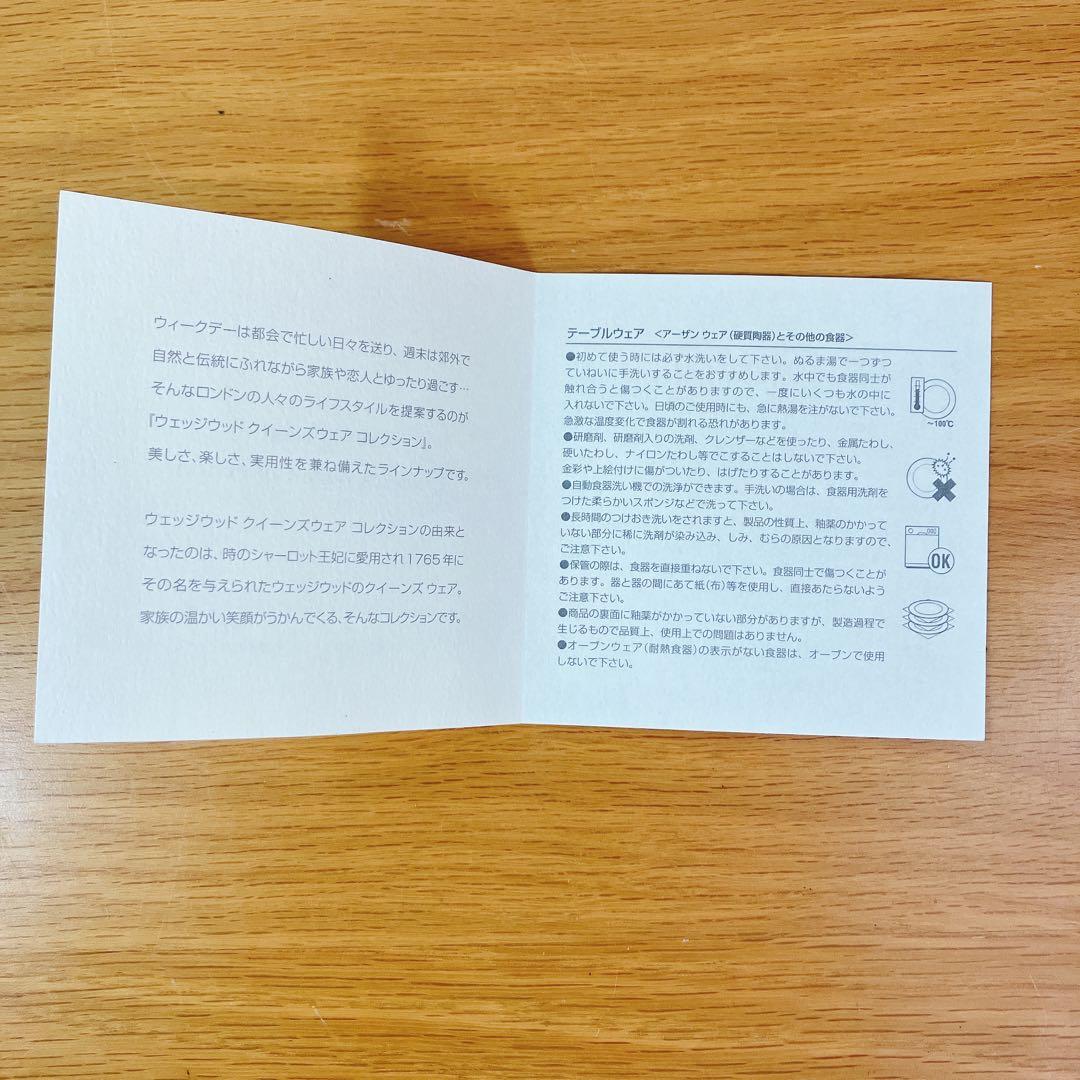 ウィークデーは都会で忙しい日々を送り、週末は郊外で
自然と伝統にふれながら家族や恋人とゆったり過ごす…
そんなロンドンの人々のライフスタイルを提案するのが
『ウェッジウッド クイーンズウェア コレクション』。
美しさ、楽しさ、実用性を兼ね備えたラインナップです。
ウェッジウッド クイーンズウェア コレクションの由来と
なったのは、時のシャーロット王妃に愛用され1765年に
その名を与えられたウェッジウッドのクイーンズ ウェア。
家族の温かい笑顔がうかんでくる、そんなコレクションです。
テーブルウェア <アーザン ウェア(硬質陶器)とその他の食器>
●初めて使う時には必ず水洗いをして下さい。ぬるま湯で一つずつ
ていねいに手洗いすることをおすすめします。水中でも食器同士が
触れ合うと傷つくことがありますので、一度にいくつも水の中に
入れないで下さい。日頃のご使用時にも、急に熱湯を注がないで下さい。
急激な温度変化で食器が割れる恐れがあります。
●研磨剤、研磨剤入りの洗剤、クレンザーなどを使ったり、金属たわし、
硬いたわし、ナイロンたわし等でこすることはしないで下さい。
金彩や上絵付けに傷がついたり、はげたりすることがあります。
●自動食器洗い機での洗浄ができます。手洗いの場合は、食器用洗剤を
つけた柔らかいスポンジなどで洗って下さい。
●長時間のつけおき洗いをされますと、製品の性質上、釉薬のかかって
いない部分に稀に洗剤が染み込み、しみ、むらの原因となりますので、
ご注意下さい。
●保管の際は、食器を直接重ねないで下さい。食器同士で傷つくことが
あります。器と器の間にあて紙(布)等を使用し、直接あたらないよう
ご注意下さい。
●商品の裏面に釉薬がかかっていない部分がありますが、製造過程で
生じるもので品質上、使用上での問題はありません。
●オーブンウェア(耐熱食器)の表示がない食器は、オーブンで使用
しないで下さい。
～100℃
OK